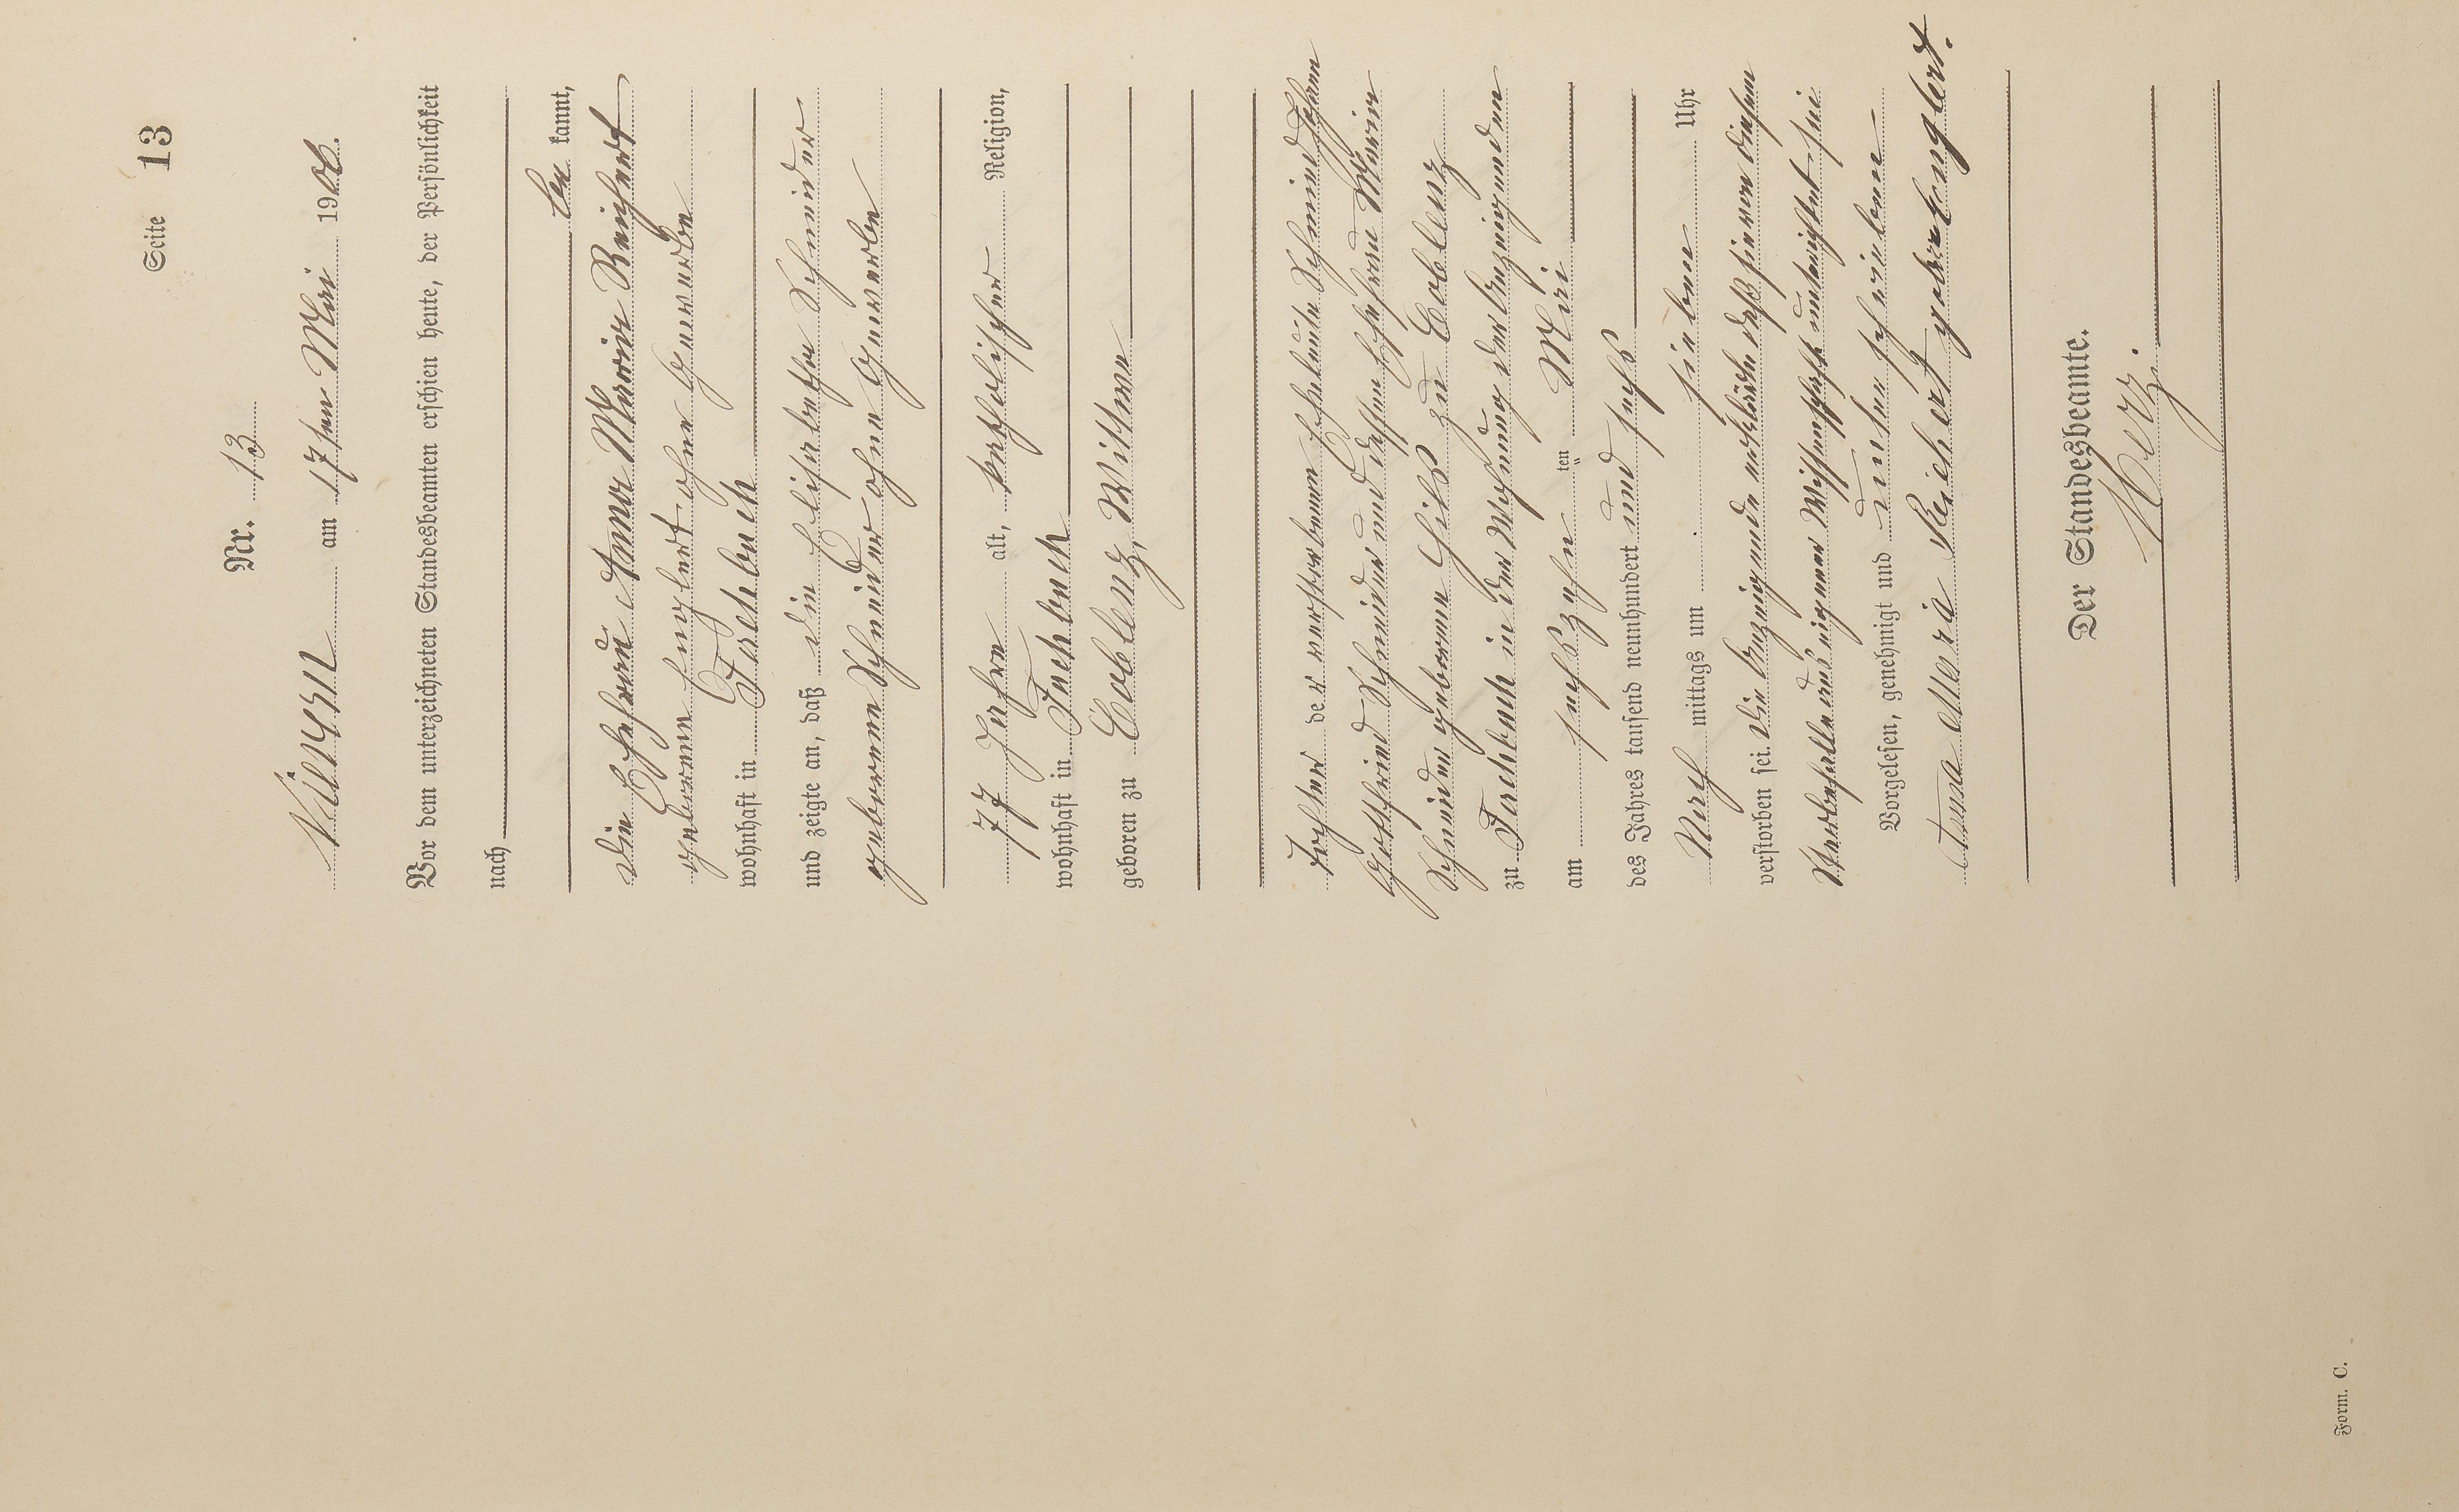 Seite 13
Nr. 13
am 17ten Mai 1906.
Vor dem unterzeichneten Standesbeamten erschien heute, der Persönlichkeit
nach
be kannt,
die Ehefrau Anna Maria Reichert
geborene Englert ohne Gewerbe
wohnhaft in Fachbach
und zeigte an, daß die Elisabetha Schneider
geborene Schneider ohne Gewerbe
77 Jahre alt, katholischer Religion,
wohnhaft in Fachbach
geboren zu Coblenz, Wittwe
Tochter der verstorbenen Eheleute Schmied Johann
Gottfried Schneider und dessen Ehefrau Maria
Schneider geborene Hils zu Coblenz
zu Fachbach in der Wohnung der Anzeigenden
am sechszehn ten Mai
des Jahres tausend neunhundert und sechs
Nach mittags um sieben Uhr
verstorben sei. Die Anzeigende erklärte daß sie von diesem
Sterbefalle aus eigener Wissenschaft unterrichtet sei
Vorgelesen, genehmigt und unterschrieben
Anna Maria Reichert geborene Englert.
Der Standesbeamte.
Herz.
Form. C.